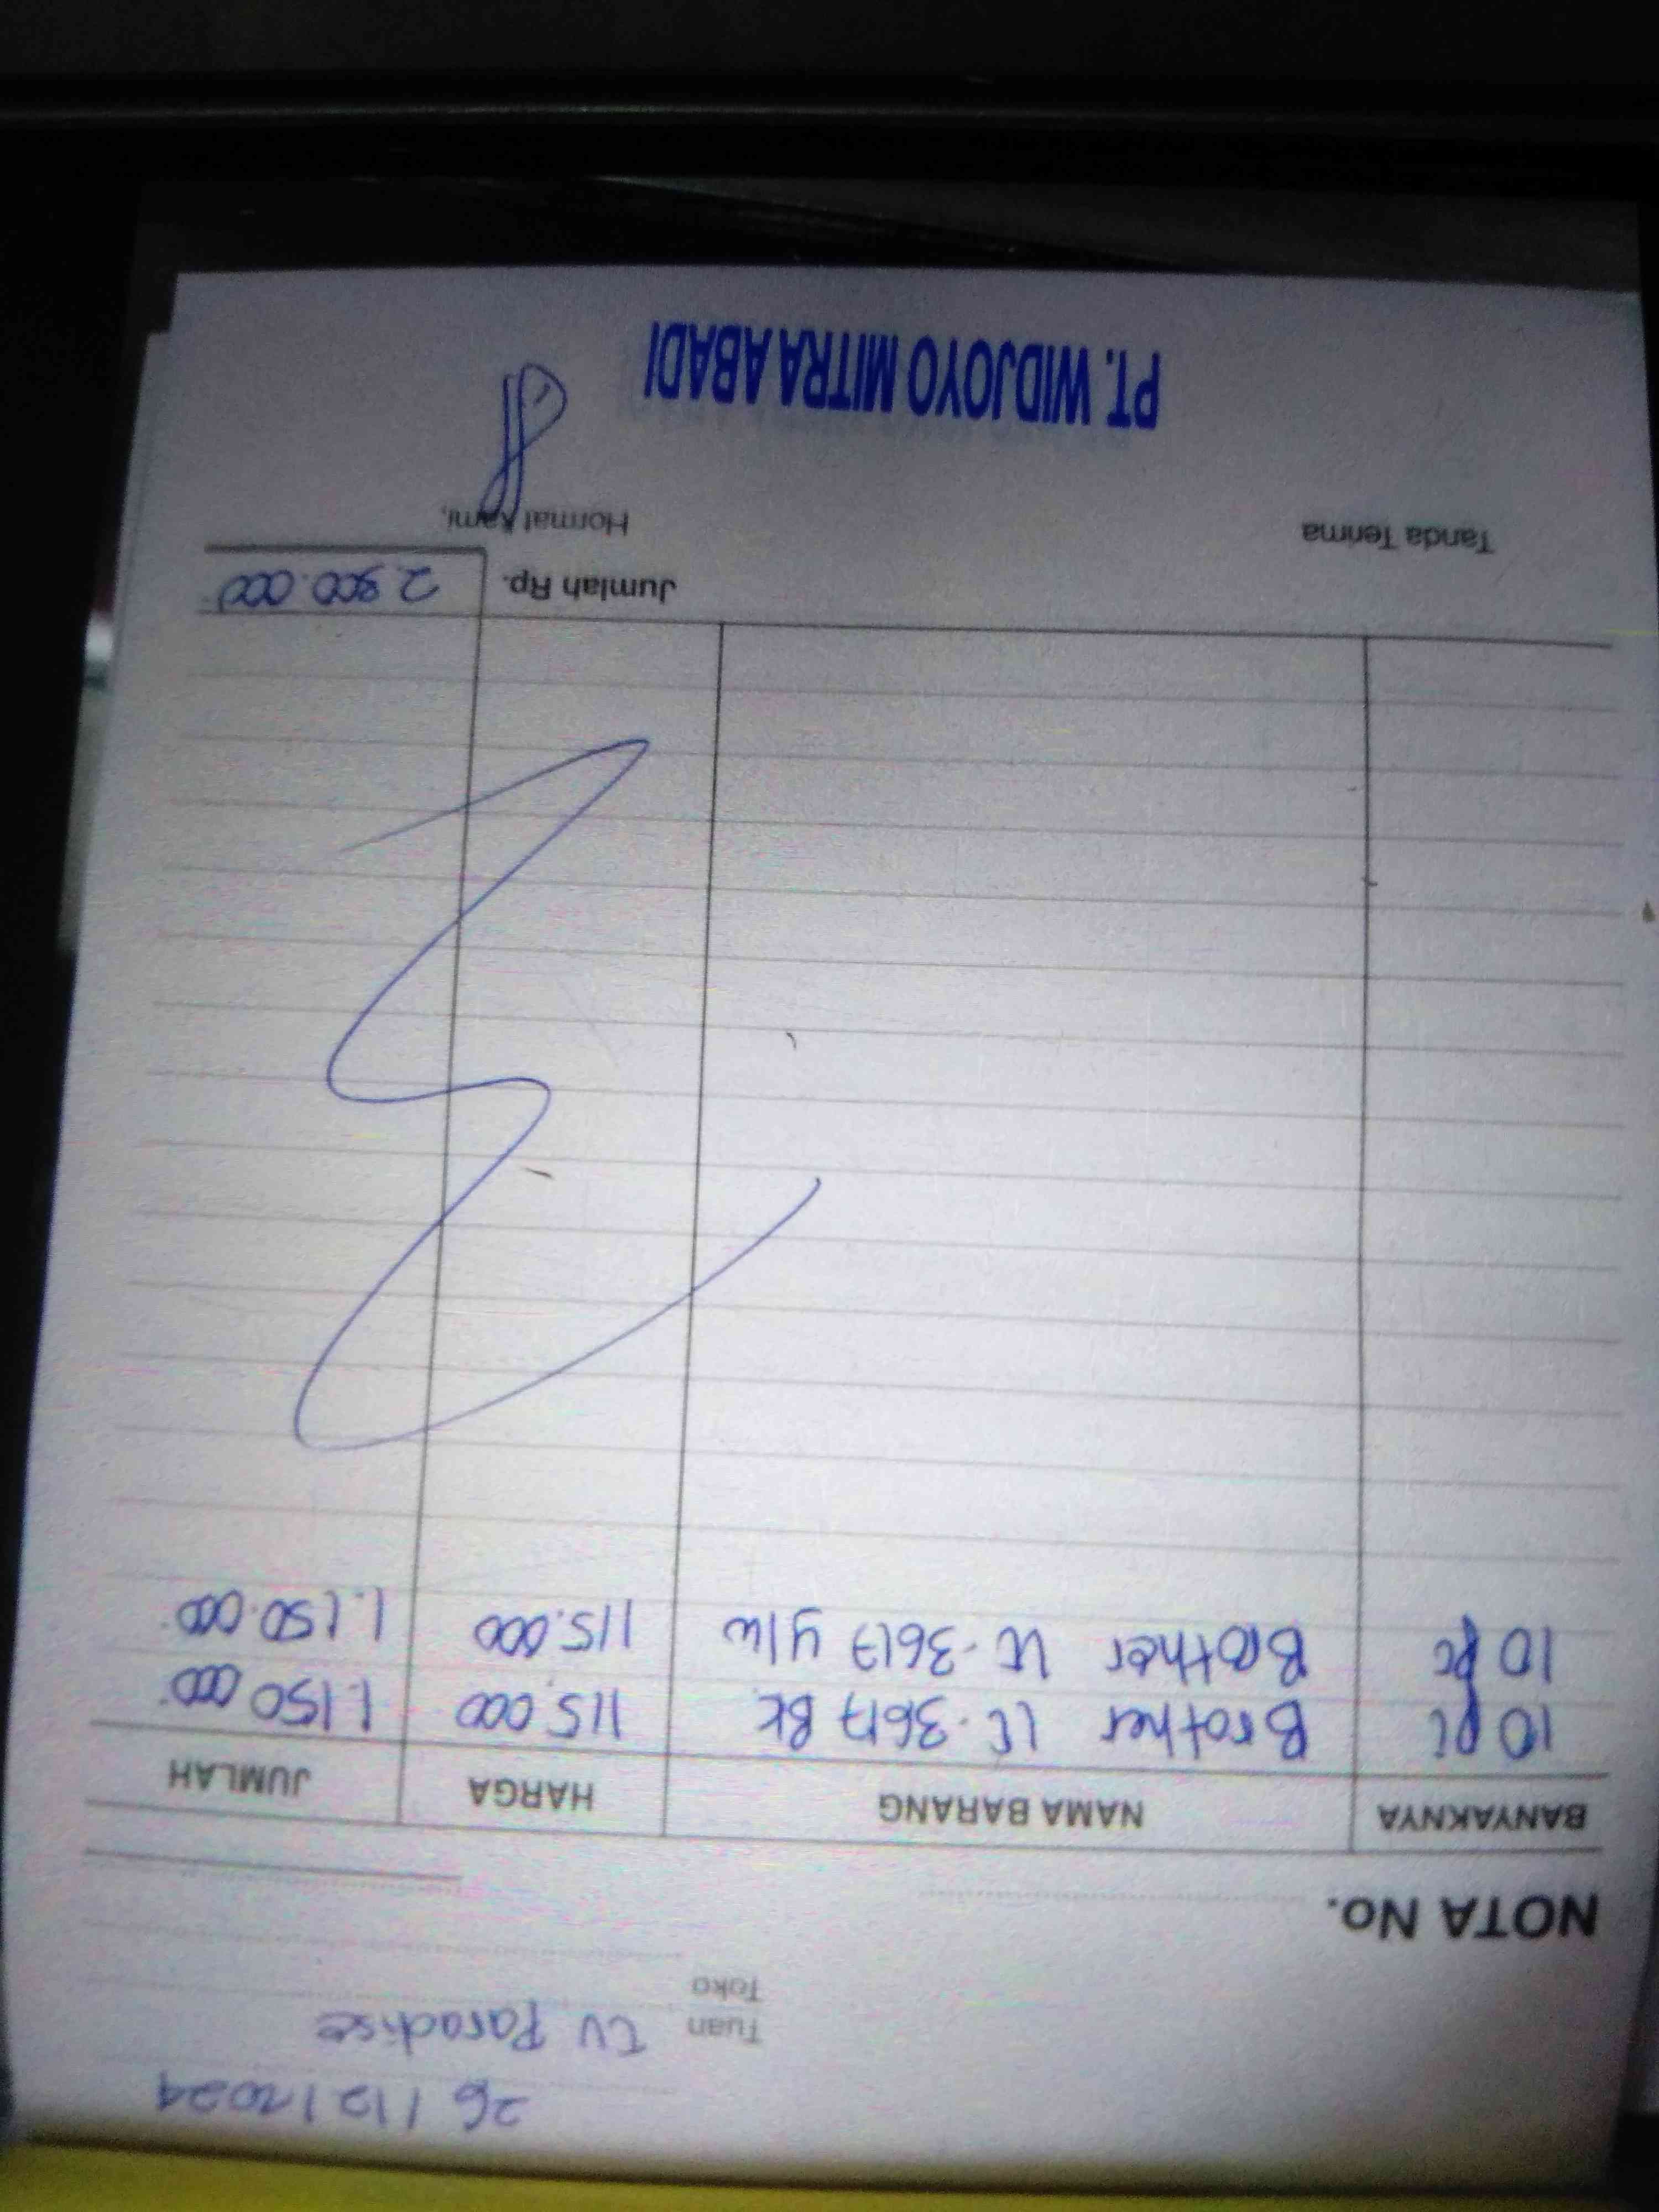 26/12/2024
Tuan CV Paradise
Toko
NOTA No.
BANYAKNYA NAMA BARANG HARGA JUMLAH
10 pc Brother LC-3617 BK 115.000 1.150.000
10 pc Brother LC-3617 ylw 115.000 1.150.000
Jumlah Rp. 2.300.000
Tanda Terima Hormat Kami,
PT. WIDJOYO MITRA ABADI